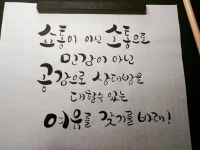 쇼통이 아닌 소통으로
민감이 아닌
공감으로 상대방을
대할수 있는
여유를 갖기를 바래!